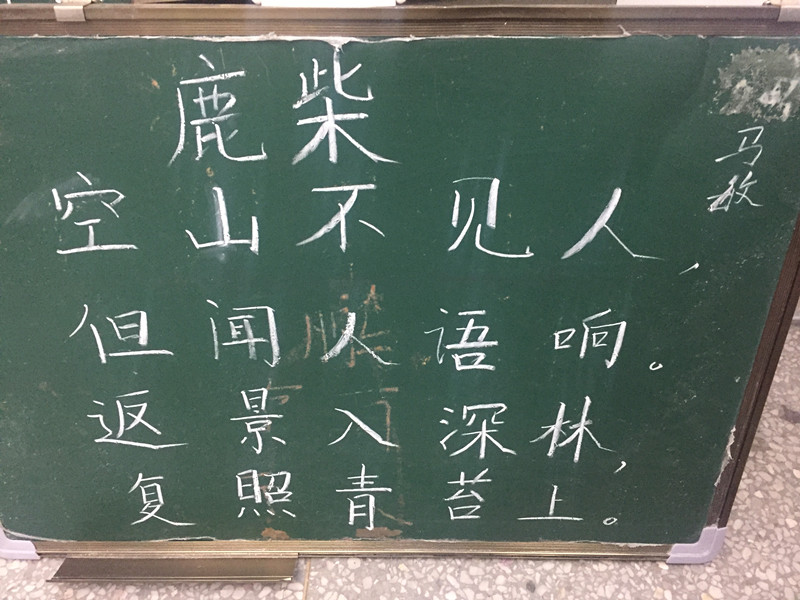 鹿柴
马敏
空山不见人，
但闻人语响。
返景入深林，
复照青苔上。